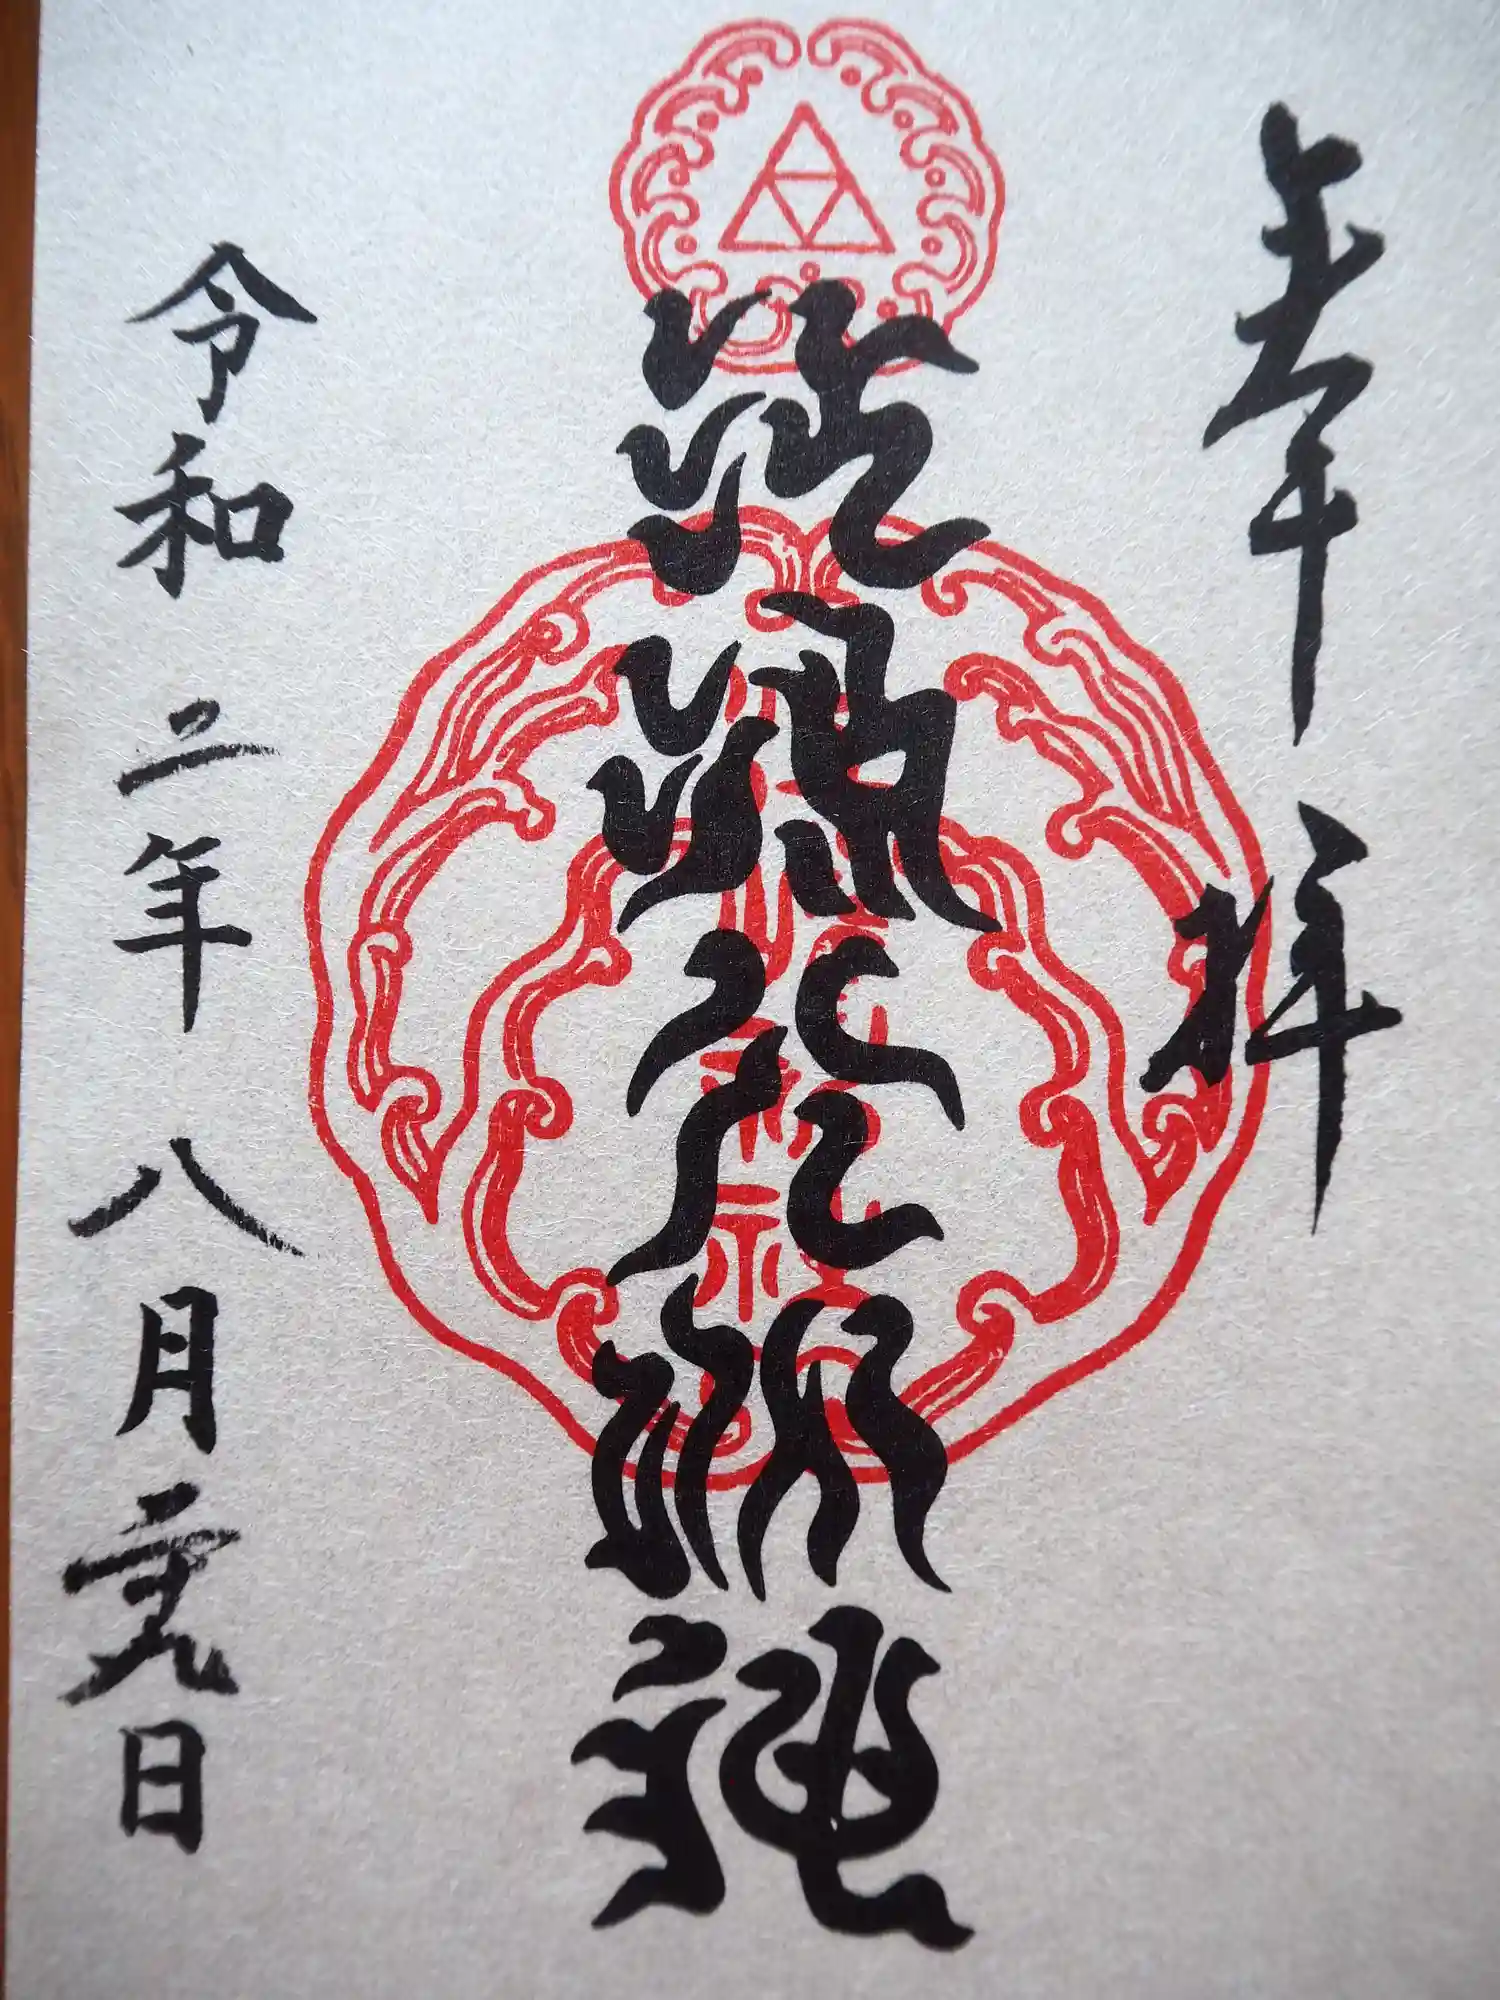 奉拝
江嶋大明神
令和二年八月二十九日